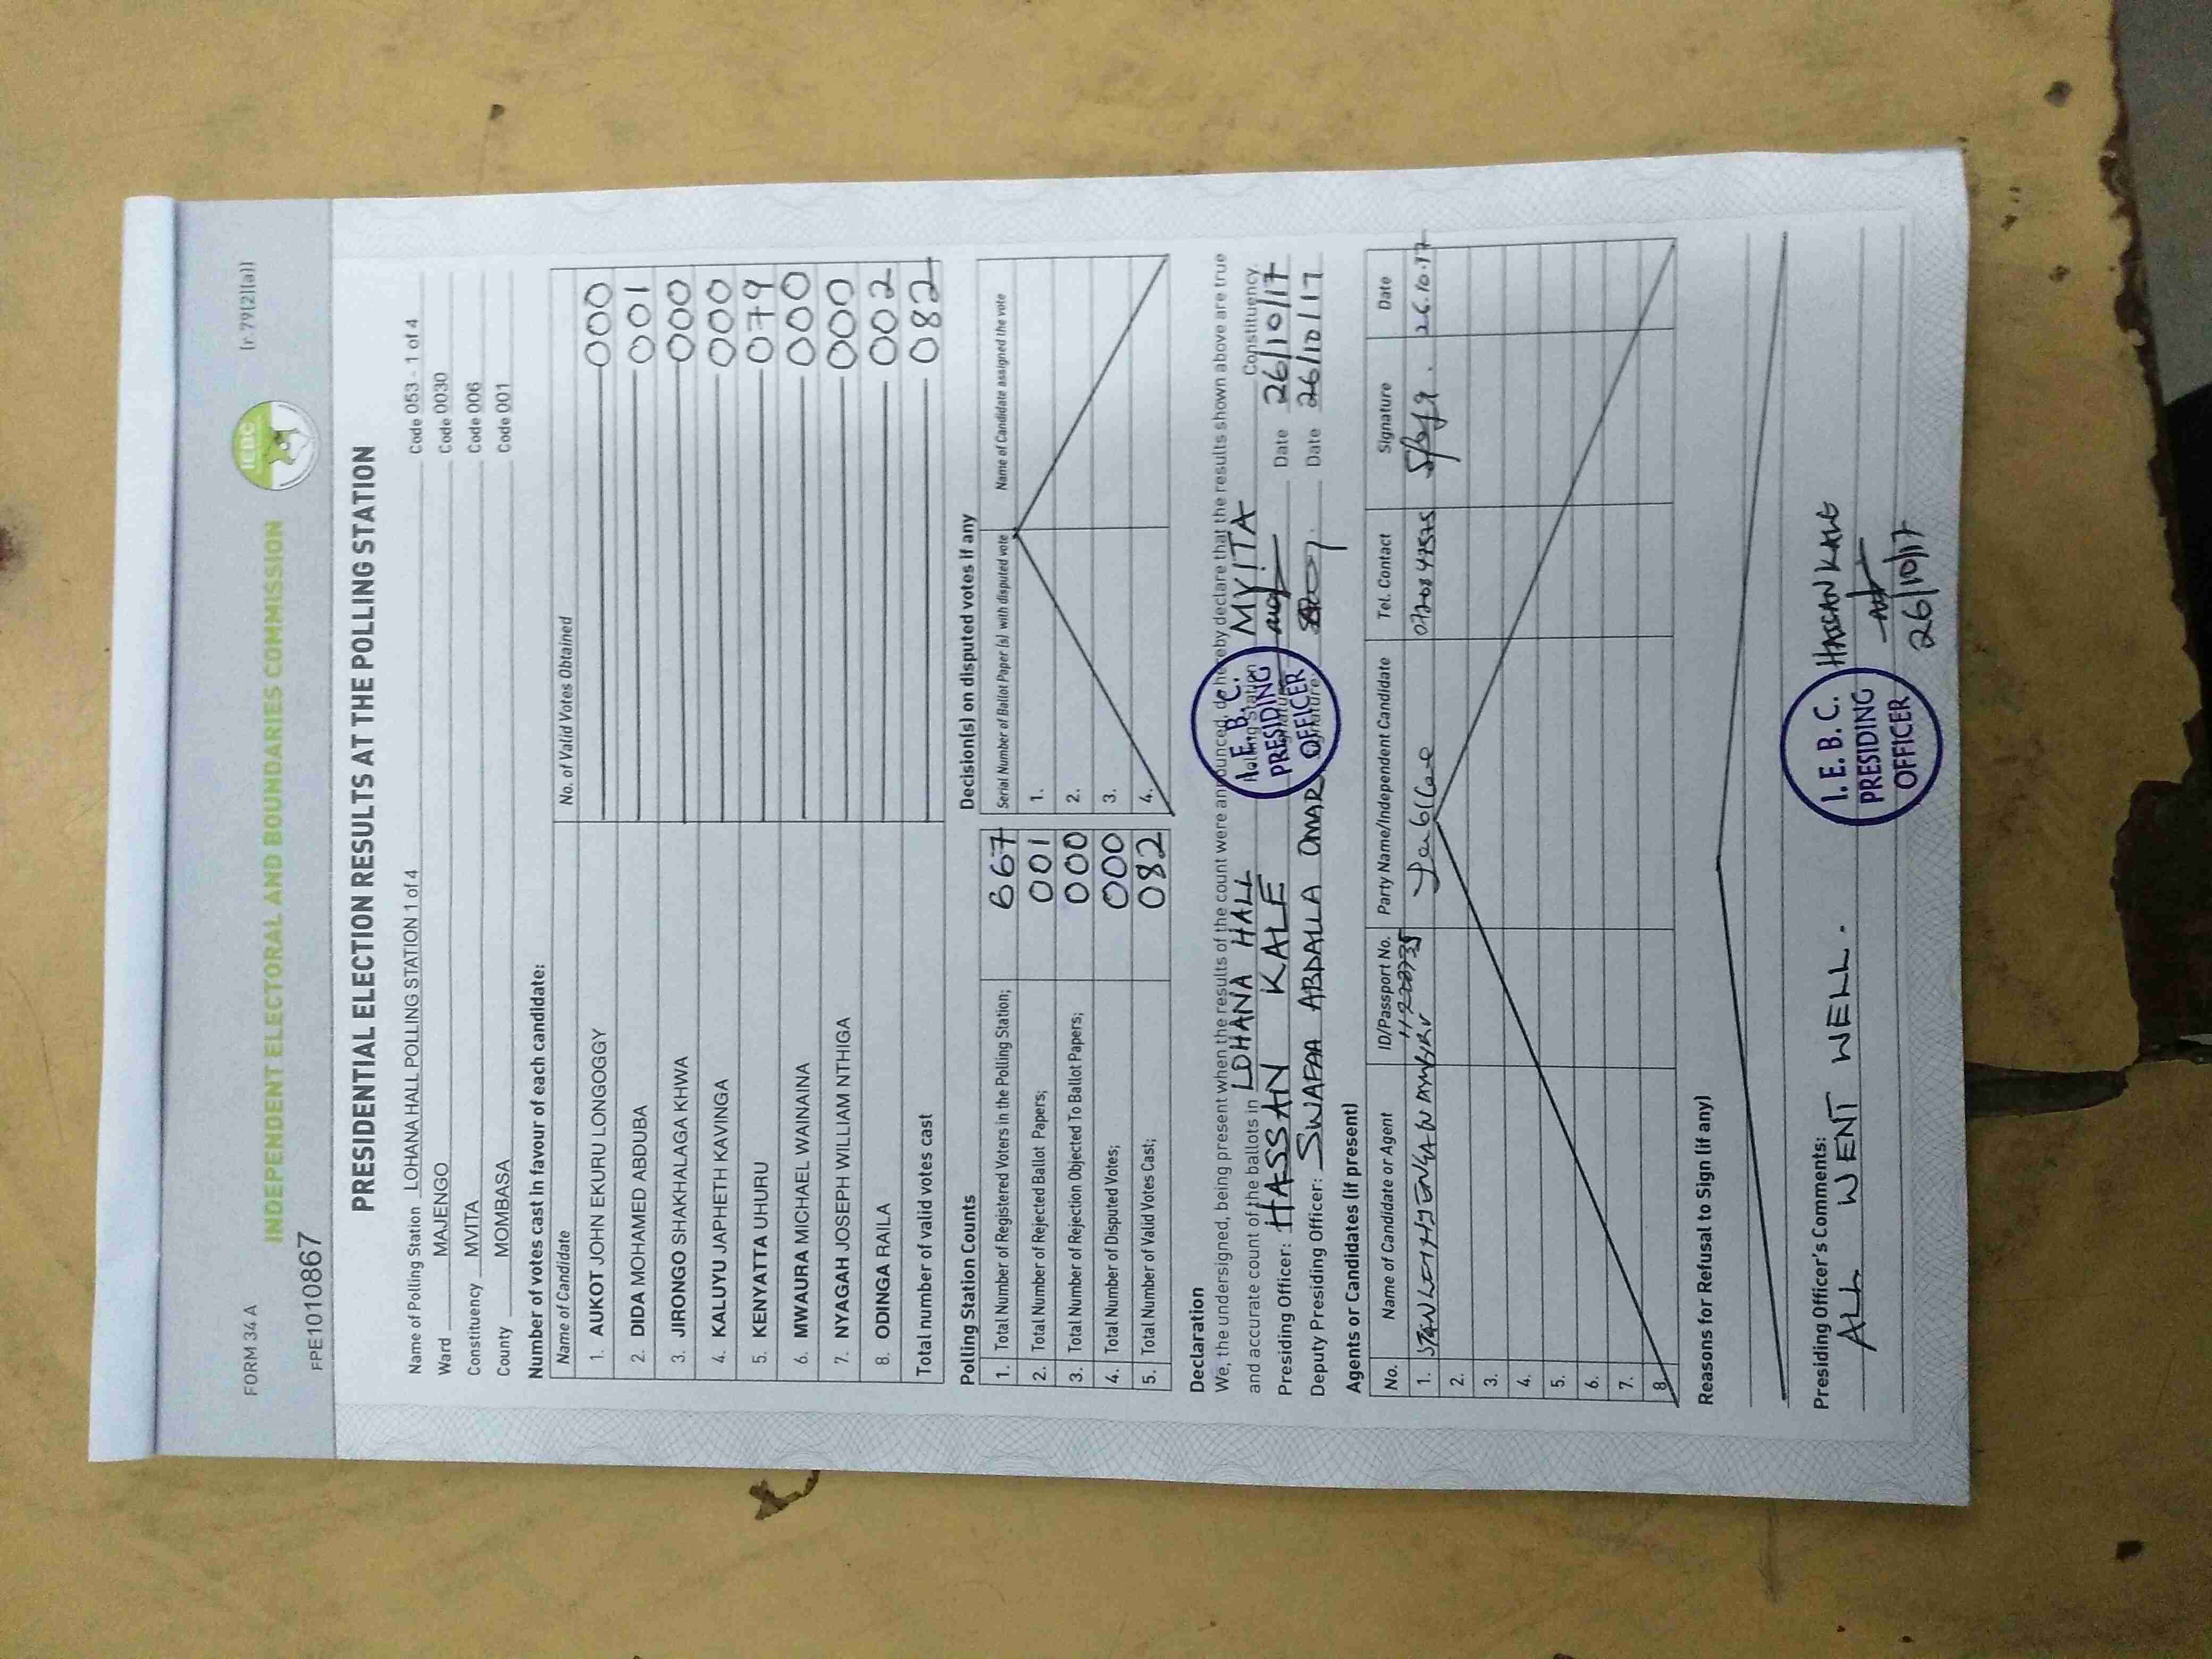 FORM 34 A
INDEPENDENT ELECTORAL AND BOUNDARIES COMMISSION
IEBC
[r.79(2)(a)]
FPE1010867
PRESIDENTIAL ELECTION RESULTS AT THE POLLING STATION
Name of Polling Station LOHANA HALL POLLING STATION 1 of 4 Code 053 - 1 of 4
Ward MAJENGO Code 0030
Constituency MVITA Code 006
County MOMBASA Code 001
Number of votes cast in favour of each candidate:
Name of Candidate No. of Valid Votes Obtained
1. AUKOT JOHN EKURU LONGOGGY 000
2. DIDA MOHAMED ABDUBA 001
3. JIRONGO SHAKHALAGA KHWA 000
4. KALUYU JAPHETH KAVINGA 000
5. KENYATTA UHURU 079
6. MWAURA MICHAEL WAINAINA 000
7. NYAGAH JOSEPH WILLIAM NTHIGA 000
8. ODINGA RAILA 002
Total number of valid votes cast 082
Polling Station Counts
1. Total Number of Registered Voters in the Polling Station; 667
2. Total Number of Rejected Ballot Papers; 001
3. Total Number of Rejection Objected To Ballot Papers; 000
4. Total Number of Disputed Votes; 000
5. Total Number of Valid Votes Cast; 082
Decision(s) on disputed votes if any
Serial Number of Ballot Paper (s) with disputed vote Name of Candidate assigned the vote
1.
2.
3.
4.
Declaration
We, the undersigned, being present when the results of the count were announced, do hereby declare that the results shown above are true
and accurate count of the ballots in LOHANA HALL Polling Station MVITA Constituency.
Presiding Officer: HASSAN KALE Signature Date 26/10/17
Deputy Presiding Officer: SWAFAA ABDALLA OMAR Signature: Date 26/10/17
I. E. B. C.
PRESIDING
OFFICER
Agents or Candidates (if present)
No. Name of Candidate or Agent ID/Passport No. Party Name/Independent Candidate Tel. Contact Signature Date
1. Jubilee 26.10.17
2.
3.
4.
5.
6.
7.
8.
Reasons for Refusal to Sign (if any)
Presiding Officer's Comments:
ALL WENT WELL.
I. E. B. C.
PRESIDING
OFFICER
HASSAN KALE
26/10/17